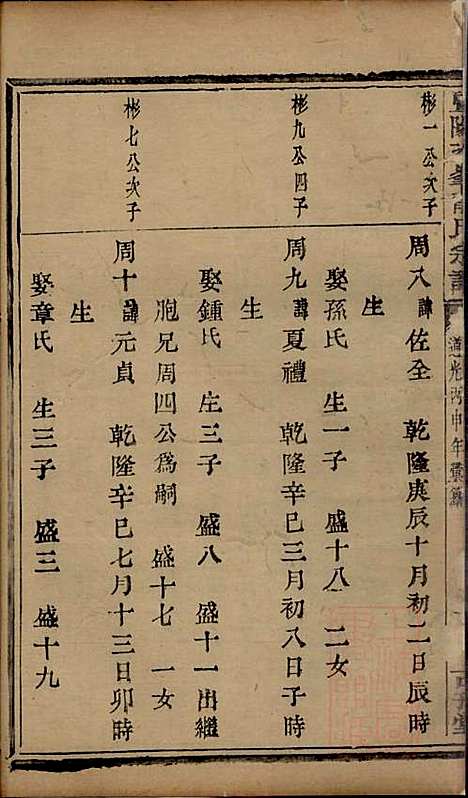 道光丙申年重纂
彬一公次子
周八諱佐全　乾隆庚辰十月初二日辰時
生
娶孫氏　生一子　盛十八　二女
彬九公四子
周九諱夏禮　乾隆辛巳三月初八日子時
生
娶鍾氏　庄三子　盛八　盛十一出繼
胞兄周四公爲嗣　盛十七　一女
彬七公次子
周十諱元貞　乾隆辛巳七月十三日卯時
生
娶章氏　生三子　盛三　盛十九